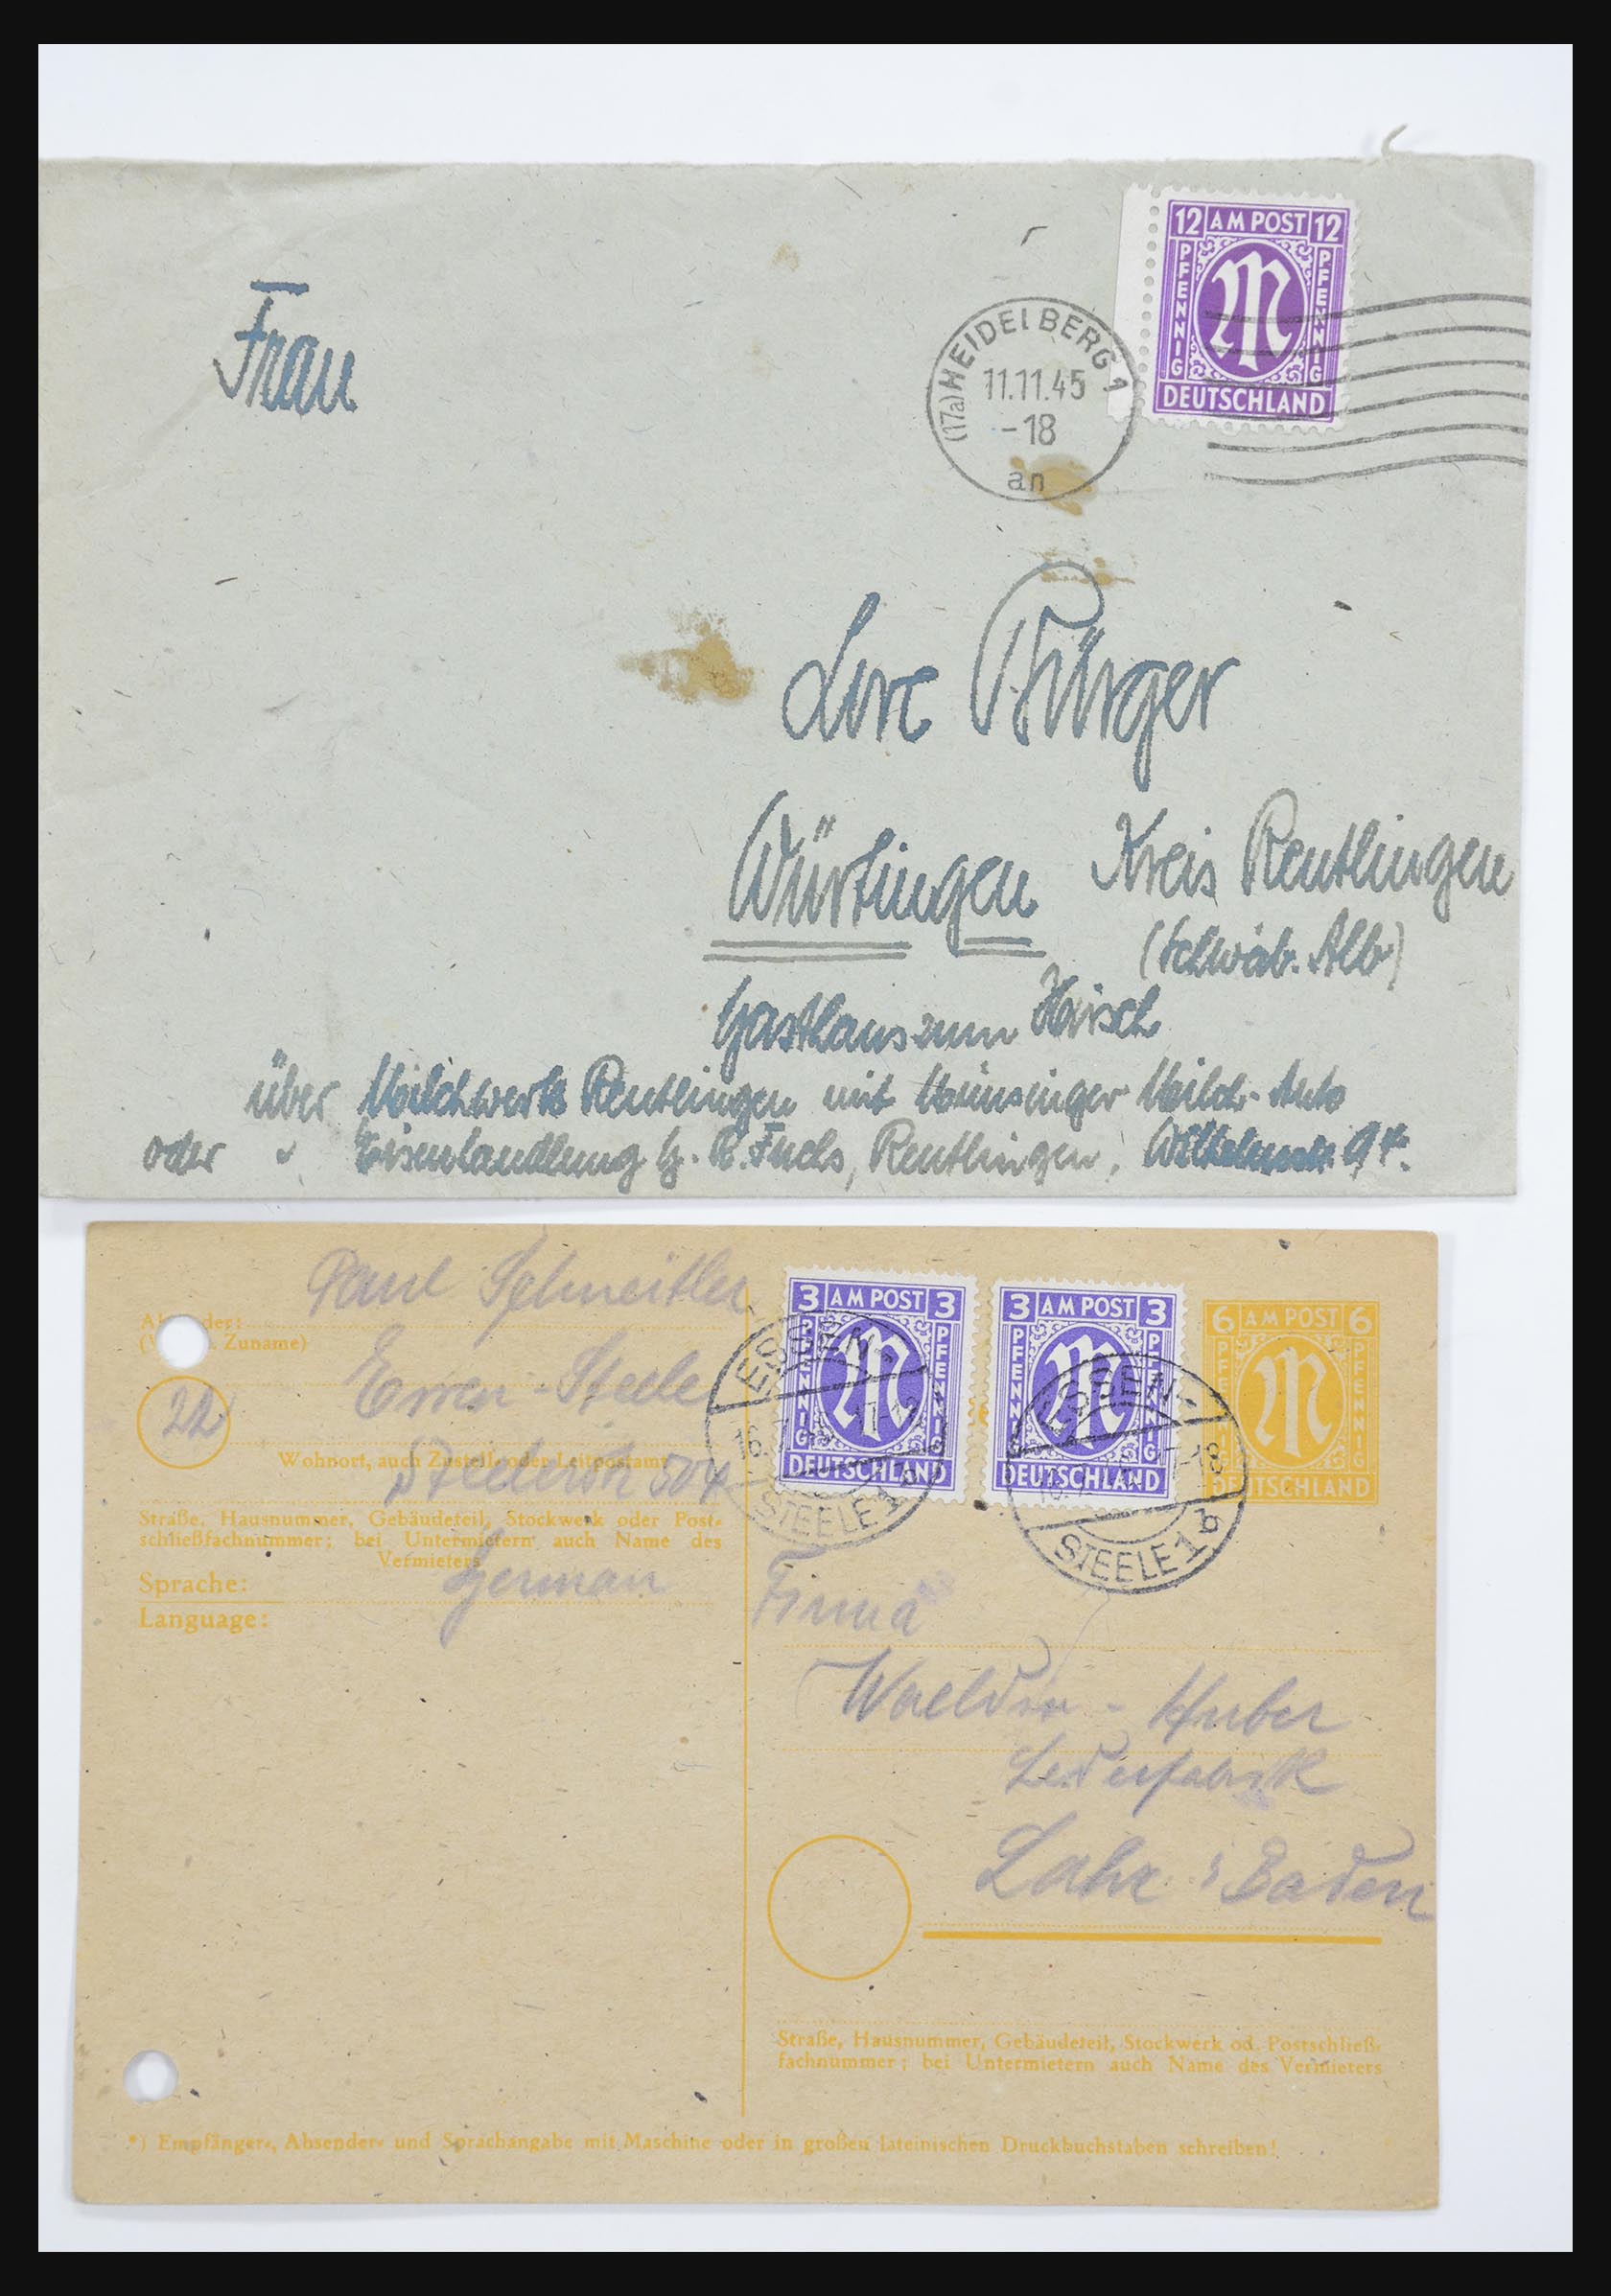 12 AM POST 12
PFENNIG PFENNIG
DEUTSCHLAND
(17a) HEIDELBERG 1
11.11.45
-18
an
Frau
Lore Bürger
Würtingen Kreis Reutlingen
(Schwäb. Alb)
Gasthaus zum Hirsch
über Milchwerk Reutlingen mit Münsinger Milch-Auto
oder " Eisenhandlung G. R. Fuchs, Reutlingen, Wilhelmstr. 94.
Paul
Essen-Steele
Steelerstr 504
22
German
Zuname)
Wohnort, auch Zustell- oder Leitpostamt
Straße, Hausnummer, Gebäudeteil, Stockwerk oder Post-
schließfachnummer; bei Untermietern auch Name des
Vermieters
Sprache:
Language:
3 AM POST 3
PFENNIG PFENNIG
DEUTSCHLAND
3 AM POST 3
PFENNIG PFENNIG
DEUTSCHLAND
6 AM POST 6
PFENNIG PFENNIG
DEUTSCHLAND
ESSEN-
STEELE 1
ESSEN-
-18
STEELE 1 b
Firma
Waeldin - Huber
Lederfabrik
Lahr i Baden
Straße, Hausnummer, Gebäudeteil, Stockwerk od. Postschließ-
fachnummer; bei Untermietern auch Name des Vermieters
*) Empfänger-, Absender- und Sprachangabe mit Maschine oder in großen lateinischen Druckbuchstaben schreiben!